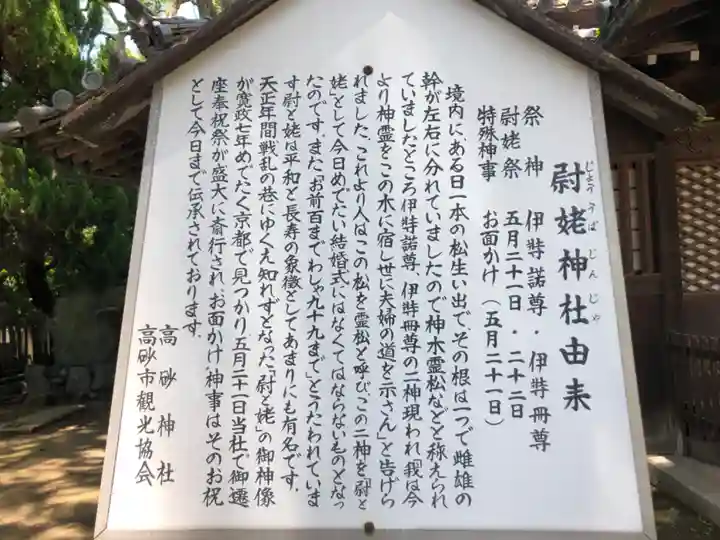 尉姥神社由来
じょううばじんじゃ
祭神 伊弉諾尊・伊弉冊尊
尉姥祭 五月二十一日・二十二日
特殊神事 お面かけ(五月二十一日)
境内に、ある日一本の松生い出で、その根は一つで雌雄の
幹が左右に分れていましたので神木霊松などと称えられ
ていましたところ伊弉諾尊、伊弉冊尊の二神現われ「我は今
より神霊をこの木に宿し世に夫婦の道を示さん」と告げら
れました、これより人はこの松を霊松と呼び、この二神を「尉と
姥」として今日めでたい結婚式にはなくてはならないものとなっ
たのです。また「お前百までわしゃ九十九まで」とうたわれていま
す尉と姥は平和と長寿の象徴としてあまりにも有名です。
天正年間戦乱の巷にゆくえ知れずとなった「尉と姥」の御神像
が寛政七年めでたく京都で見つかり五月二十一日当社で御遷
座奉祝祭が盛大に斎行され、お面かけ神事はそのお祝
として今日まで伝承されております。
高砂神社
高砂市観光協会